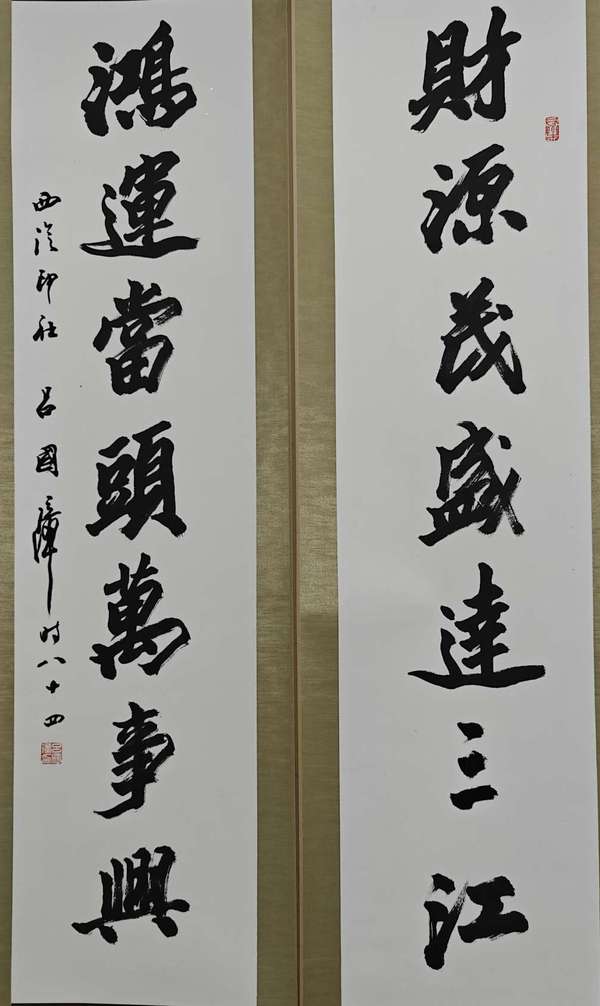 財源茂盛達三江
鴻運當頭萬事興
西泠印社 呂國璋 時八十四